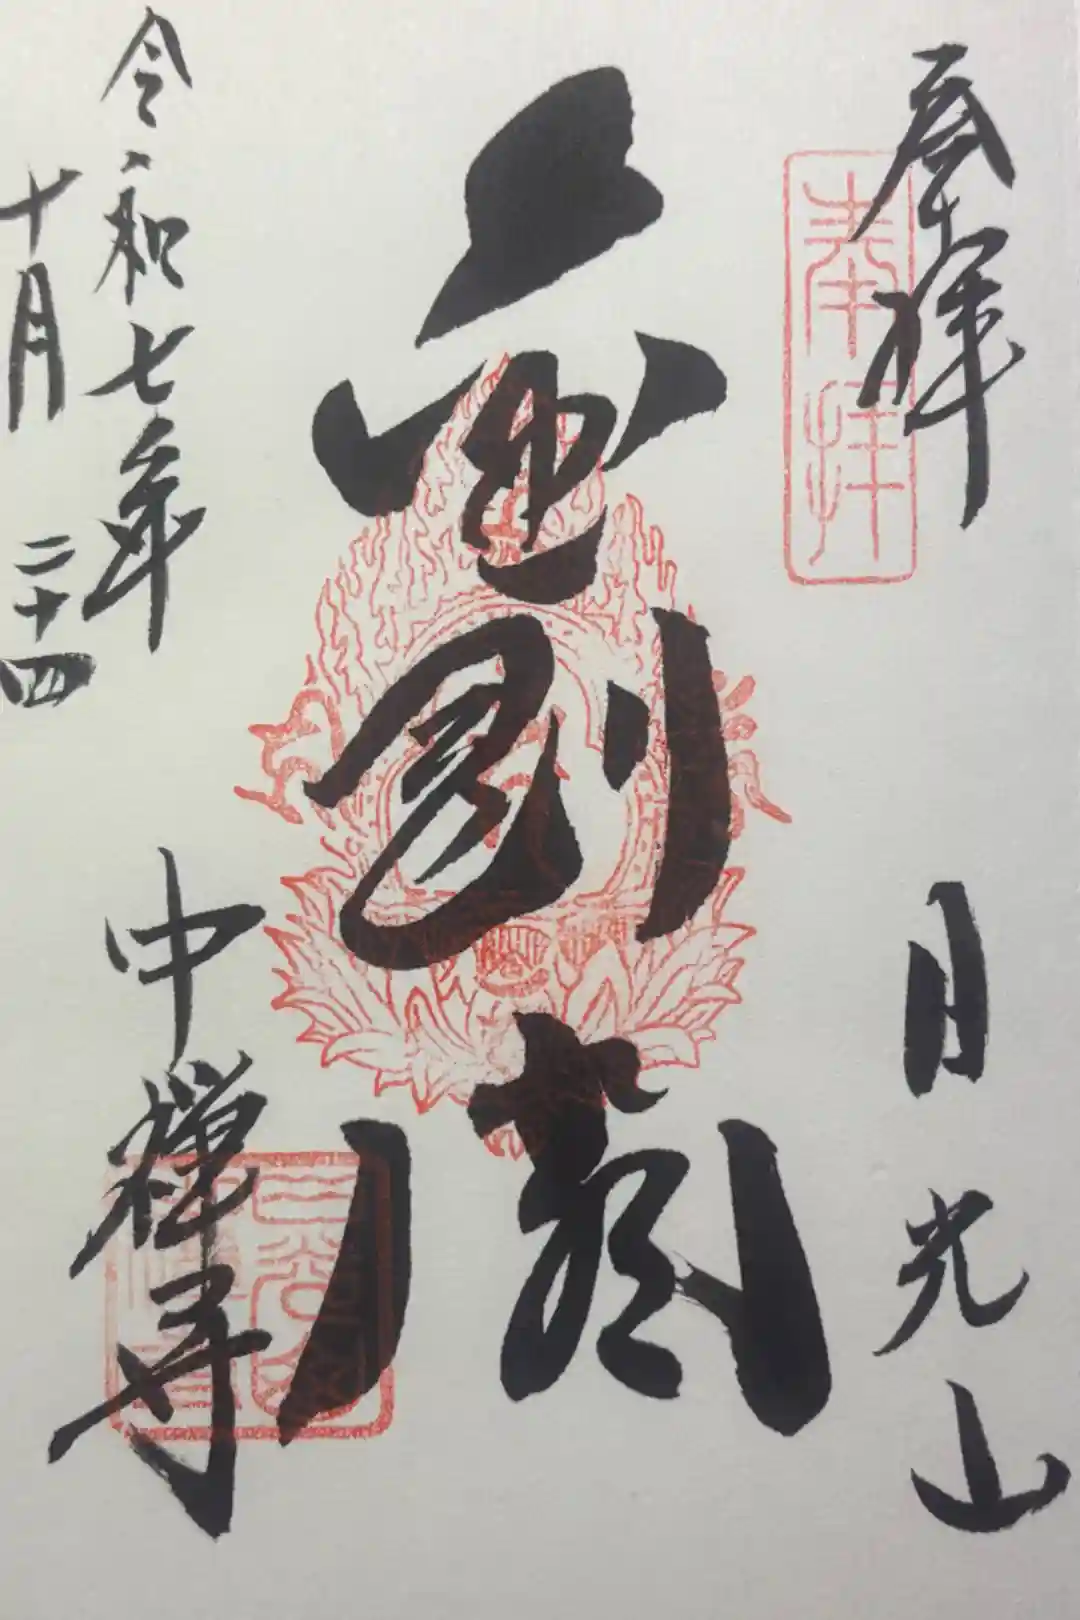 奉拝
奉拝
日光山
金剛
令和七年
十月二十四
中禅寺